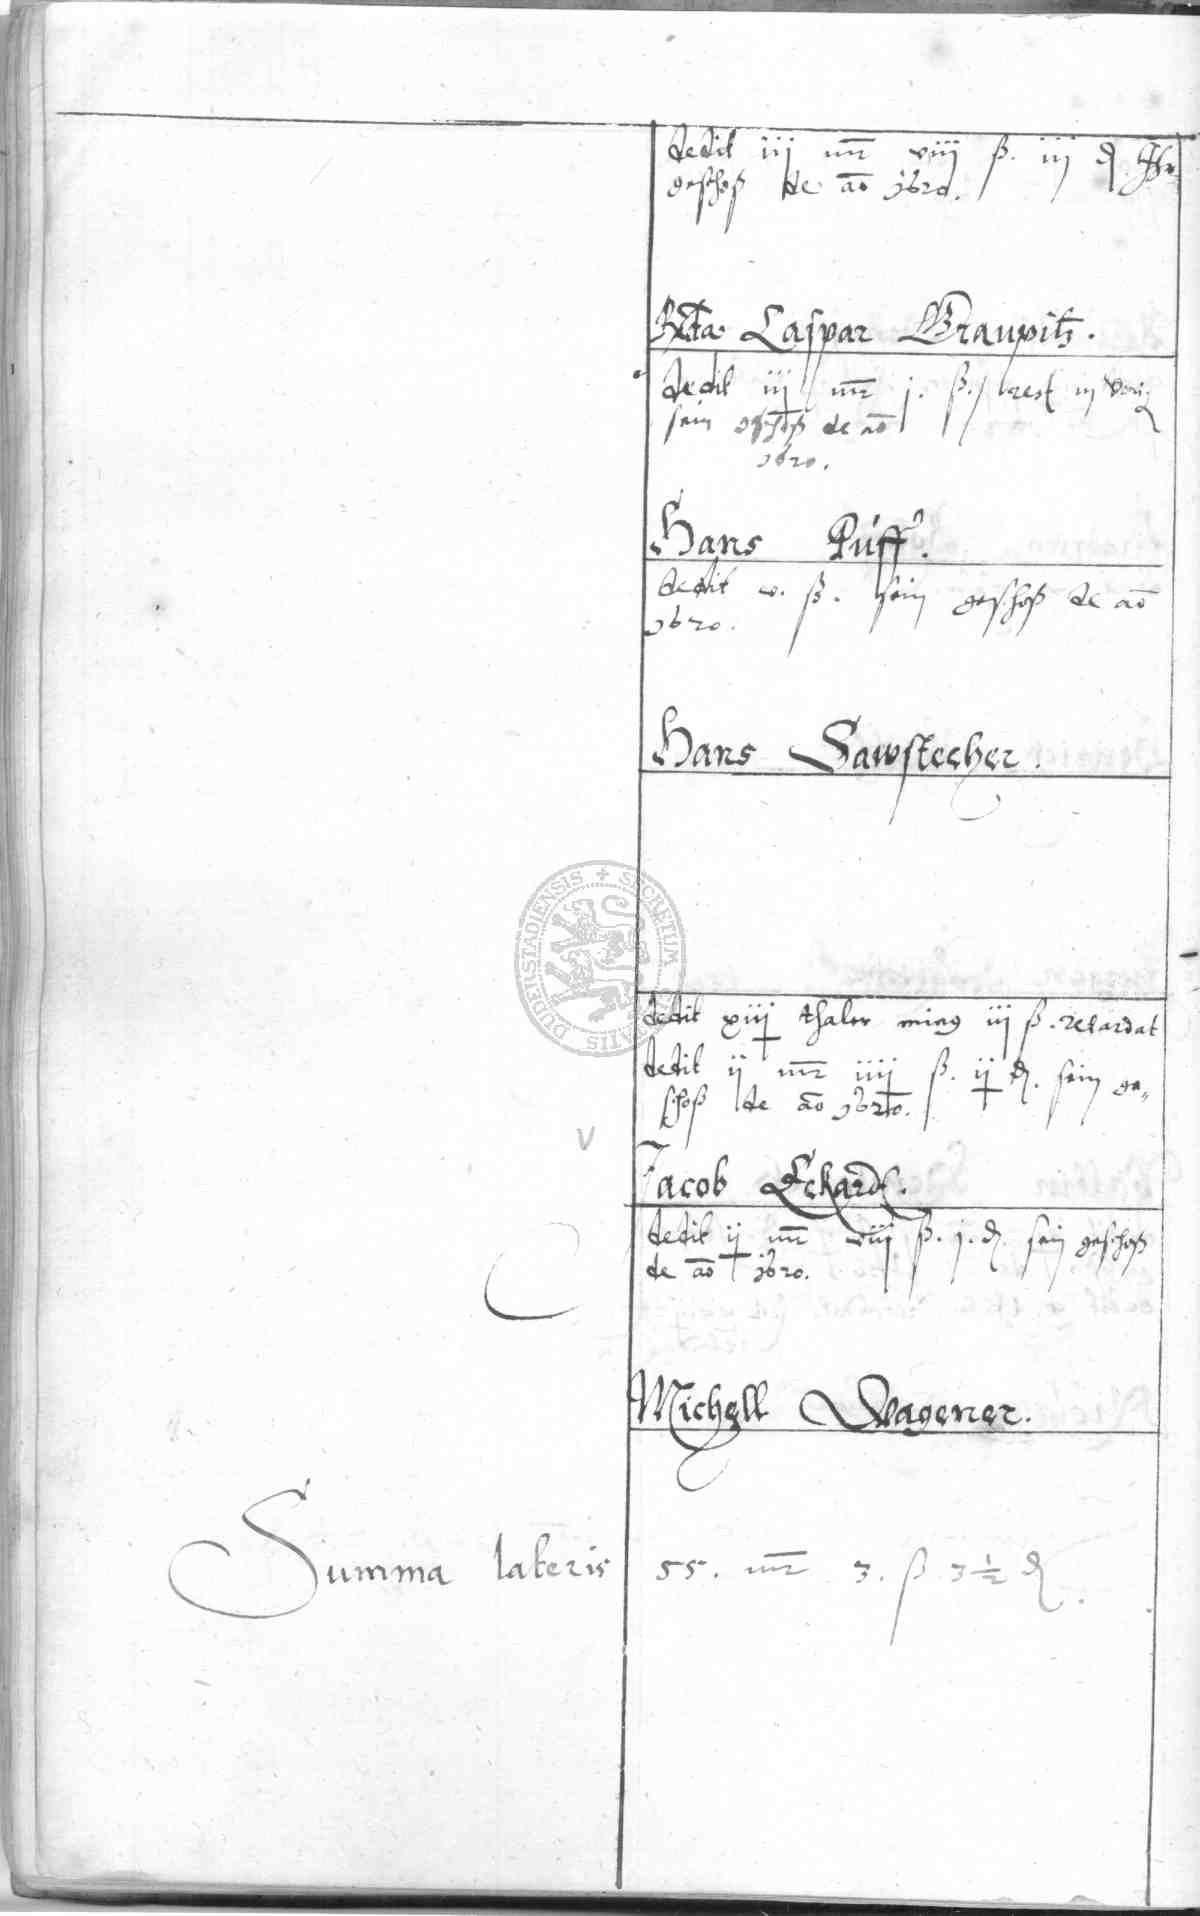 dedit iij mr viij ß. iij d Ihr
geschoß de ao 1620.
Rcta Caspar Graupitz.
dedit iij mr j. ß. rest iij
sein gschoß de ao
1620.
Hans Puff.
dedit v. ß. sein geschoß de ao
1620.
Hans Sawstecher.
SECRETUM DUDERSTADIENSIS
dedit xiij thaler minus iij ß. retardat
dedit ij mr iiij ß. ij d. sein ge-
schoß de ao 1620.
V
Jacob Eckardt.
dedit ij mr viij ß. j. d. sein geschoß
de ao 1620.
Michell Wagener.
Summa lateris 55. mr 3. ß 3 1/2 d.